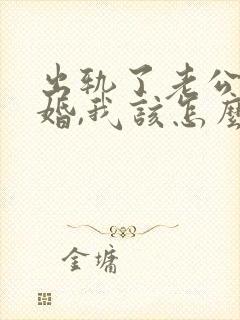 出轨了老公
婚,我该怎麼
金墉